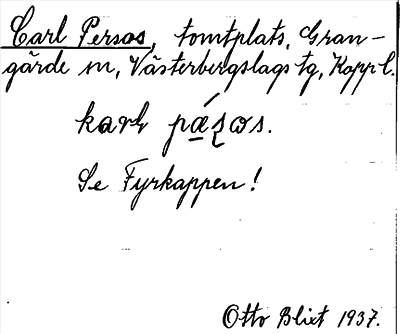 Carl Persas, tomtplats, Gran-
gärde sn, Västerbergslags tg, Kopp l.
Se Fyrkappen!
Otto Blixt 1937.